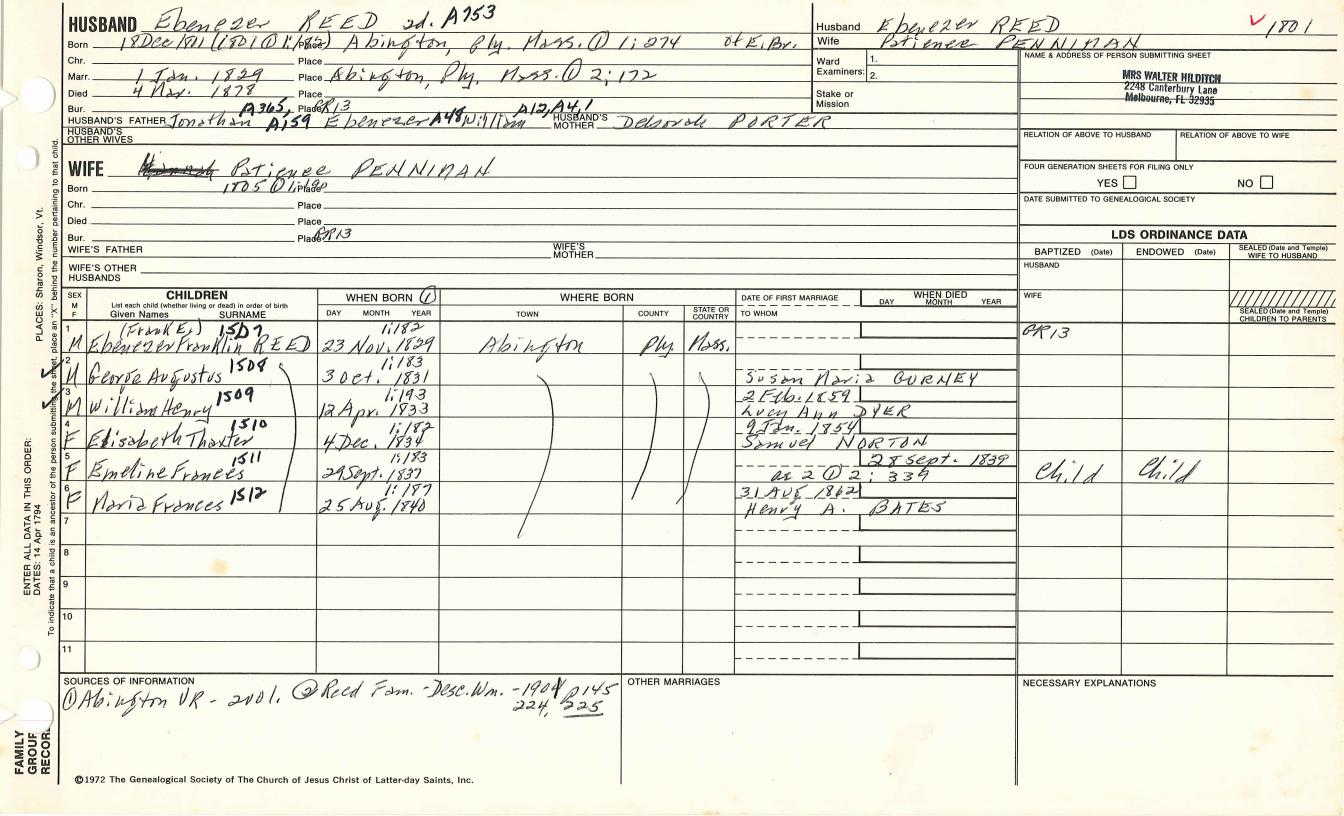 HUSBAND Ebenezer REED 2d. A753
Born 18 Dec 1801 (1801 ① 1:182) Place Abington, Ply. Mass. ① 1:274 of E. Br.
Chr. Place
Marr. 1 Jan. 1829 Place Abington, Ply. Mass. ① 2:172
Died 4 Mar. 1878 Place
Bur. Place GR13
HUSBAND'S FATHER Jonathan A365, A159 Ebenezer A48 William A12, A4, 1 HUSBAND'S MOTHER Deborah PORTER
HUSBAND'S OTHER WIVES
WIFE Patience PENNIMAN
Born 1805 ① Place
Chr. Place
Died Place
Bur. Place GR13
WIFE'S FATHER WIFE'S MOTHER
WIFE'S OTHER HUSBANDS
Husband Ebenezer REED 1801
Wife Patience PENNIMAN
Ward Examiners: 1.
2.
Stake or Mission
NAME & ADDRESS OF PERSON SUBMITTING SHEET
MRS WALTER HILDITCH
2248 Canterbury Lane
Melbourne, FL 32935
RELATION OF ABOVE TO HUSBAND RELATION OF ABOVE TO WIFE
FOUR GENERATION SHEETS FOR FILING ONLY
YES NO
DATE SUBMITTED TO GENEALOGICAL SOCIETY
LDS ORDINANCE DATA
BAPTIZED (Date) ENDOWED (Date) SEALED (Date and Temple) WIFE TO HUSBAND
HUSBAND
WIFE
SEALED (Date and Temple) CHILDREN TO PARENTS
SEX M F
CHILDREN
List each child (whether living or dead) in order of birth
Given Names SURNAME
WHEN BORN ①
DAY MONTH YEAR
WHERE BORN
TOWN COUNTY STATE OR COUNTRY
DATE OF FIRST MARRIAGE
TO WHOM
WHEN DIED
DAY MONTH YEAR
1 (Frank E.) 1507 1:182
M Ebenezer Franklin REED 23 Nov. 1829 Abington Ply Mass. GR13
2 1508 1:183
M George Augustus 3 Oct. 1831 Susan Maria GURNEY
3 1509 1:193 2 Feb. 1859
M William Henry 12 Apr. 1833 Lucy Ann DYER
4 1510 1:182 9 Jan. 1854
F Elisabeth Thaxter 4 Dec. 1834 Samuel NORTON
5 1511 1:183 28 Sept. 1839
F Emeline Frances 29 Sept. 1837 ae 2 ① 2:339 Child Child
6 1512 1:187 31 AUG 1862
F Maria Frances 25 Aug. 1840 Henry A. BATES
7
8
9
10
11
SOURCES OF INFORMATION
① Abington VR - 2001. ② Reed Fam. - Desc. Wm. - 1901 p145
224, 225
OTHER MARRIAGES
NECESSARY EXPLANATIONS
©1972 The Genealogical Society of The Church of Jesus Christ of Latter-day Saints, Inc.
FAMILY GROUP RECORD
ENTER ALL DATA IN THIS ORDER:
DATES: 14 Apr 1794 PLACES: Sharon, Windsor, Vt.
To indicate that a child is an ancestor of the person submitting the sheet, place an "X" behind the number pertaining to that child.